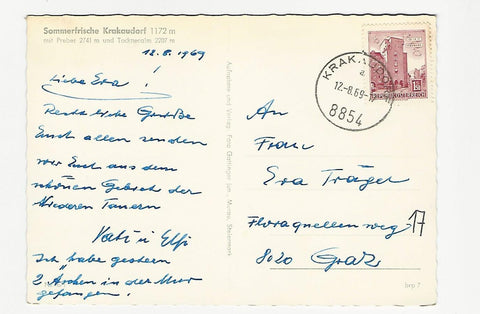 Sommerfrische Krakaudorf 1172 m
mit Preber 2741 m und Tockneralm 2287 m
12.8.1969
Liebe Eva!
Recht liebe Grüße
Euch allen senden
wir Euch aus dem
schönen Gebiet der
Niederen Tauern
Vati u Elfi
Ich habe gestern
2 Äschen in der Mur
gefangen.
Aufnahme und Verlag: Foto Murau, Steiermark
KRAKAUDORF
a
12.-8.69-
8854
REPUBLIK ÖSTERREICH
An
Frau
Eva Träger
Floraquellenweg 17
8020 Graz